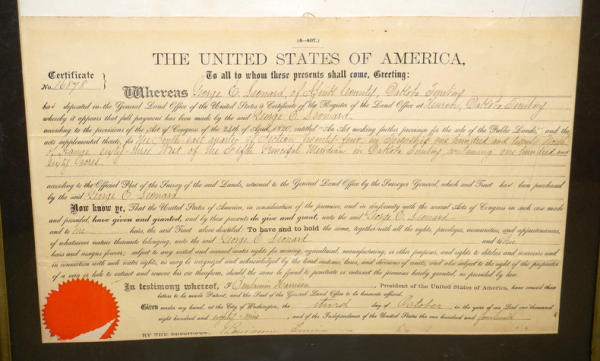 (4—407.)
THE UNITED STATES OF AMERICA,
Certificate
No. 16878
To all to whom these presents shall come, Greeting:
Whereas George E. Leonard, of County, Dakota Territory
has deposited in the General Land Office of the United States a Certificate of the Register of the Land Office at Huron, Dakota Territory
whereby it appears that full payment has been made by the said George E. Leonard
according to the provisions of the Act of Congress of the 24th of April, 1820, entitled "An Act making further provision for the sale of the Public Lands," and the
acts supplemental thereto, for the South east quarter of Section twenty four, in Township one hundred and twenty
of Range sixty three West of the Fifth Principal Meridian in Dakota Territory containing one hundred and
sixty acres
according to the Official Plat of the Survey of the said Lands, returned to the General Land Office by the Surveyor General, which said Tract has been purchased
by the said George E. Leonard
Now know ye, That the United States of America, in consideration of the premises, and in conformity with the several Acts of Congress in such case made
and provided, have given and granted, and by these presents do give and grant, unto the said George E. Leonard
and to his heirs, the said Tract above described: To have and to hold the same, together with all the rights, privileges, immunities, and appurtenances,
of whatsoever nature thereunto belonging, unto the said George E. Leonard and to his
heirs and assigns forever, subject to any vested and accrued water rights for mining, agricultural, manufacturing, or other purposes, and rights to ditches and reservoirs used
in connection with such water rights, as may be recognized and acknowledged by the local customs, laws, and decisions of courts, and also subject to the right of the proprietor
of a vein or lode to extract and remove his ore therefrom, should the same be found to penetrate or intersect the premises hereby granted, as provided by law.
In testimony whereof, I Benjamin Harrison President of the United States of America, have caused these
letters to be made Patent, and the Seal of the General Land Office to be hereunto affixed.
Given under my hand, at the City of Washington, the third day of October, in the year of our Lord one thousand
eight hundred and eighty-nine, and of the Independence of the United States the one hundred and fourteenth
BY THE PRESIDENT: Benjamin Harrison